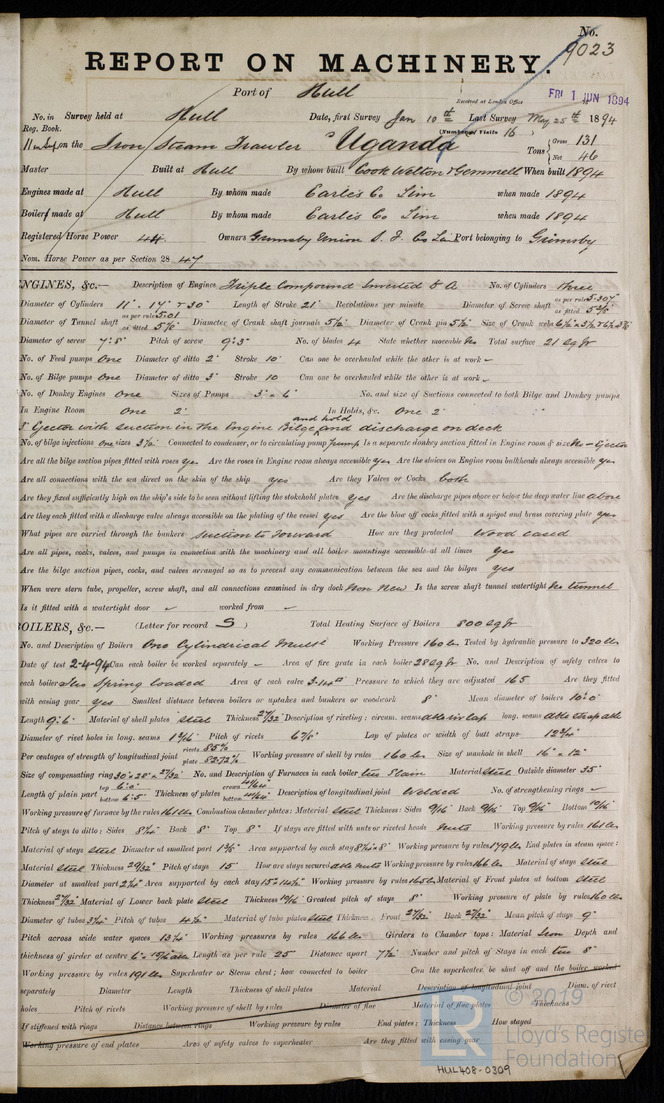 No. 9023
REPORT ON MACHINERY.
Port of Hull
Received at London Office FRI 1 JUN 1894
No. in Survey held at Hull Date, first Survey Jan 10th Last Survey May 25th 1894
Reg. Book. (Number of Visits 16)
on the Iron Steam Trawler "Uganda" Tons { Gross 131 Net 46
Master Built at Hull By whom built Cook Welton & Gemmell When built 1894
Engines made at Hull By whom made Earle's Co Lim when made 1894
Boilers made at Hull By whom made Earle's Co Lim when made 1894
Registered Horse Power 44 Owners Grimsby Union S. F. Co Ld Port belonging to Grimsby
Nom. Horse Power as per Section 28 47
ENGINES, &c.— Description of Engines Triple Compound Inverted D A No. of Cylinders three
Diameter of Cylinders 11" . 17" & 30" Length of Stroke 21" Revolutions per minute Diameter of Screw shaft as per rule 5.307 as fitted 5 5/8"
Diameter of Tunnel shaft as per rule 5.01 as fitted 5 7/8" Diameter of Crank shaft journals 5 1/2" Diameter of Crank pin 5 1/2" Size of Crank webs
Diameter of screw 7'.8" Pitch of screw 9'.3" No. of blades 4 State whether moveable No Total surface 21 sq ft
No. of Feed pumps One Diameter of ditto 2" Stroke 10" Can one be overhauled while the other is at work –
No. of Bilge pumps One Diameter of ditto 3" Stroke 10 Can one be overhauled while the other is at work –
No. of Donkey Engines One Sizes of Pumps 3" × 6" No. and size of Suctions connected to both Bilge and Donkey pumps
In Engine Room One 2" In Holds, &c. One 2"
Ejector with suction in the Engine Bilge and hold, and discharge on deck
No. of bilge injections One sizes 3 1/2" Connected to condenser, or to circulating pump pump Is a separate donkey suction fitted in Engine room & size No – Ejector
Are all the bilge suction pipes fitted with roses yes Are the roses in Engine room always accessible yes Are the sluices on Engine room bulkheads always accessible yes
Are all connections with the sea direct on the skin of the ship yes Are they Valves or Cocks both
Are they fixed sufficiently high on the ship's side to be seen without lifting the stokehold plates yes Are the discharge pipes above or below the deep water line above
Are they each fitted with a discharge valve always accessible on the plating of the vessel yes Are the blow off cocks fitted with a spigot and brass covering plate yes
What pipes are carried through the bunkers suction to forward How are they protected Wood cased
Are all pipes, cocks, valves, and pumps in connection with the machinery and all boiler mountings accessible at all times yes
Are the bilge suction pipes, cocks, and valves arranged so as to prevent any communication between the sea and the bilges yes
When were stern tube, propeller, screw shaft, and all connections examined in dry dock Now New Is the screw shaft tunnel watertight No tunnel
Is it fitted with a watertight door – worked from –
BOILERS, &c.— (Letter for record S) Total Heating Surface of Boilers 800 sq ft
No. and Description of Boilers One Cylindrical Mult. Working Pressure 160 lbs Tested by hydraulic pressure to 320 lbs
Date of test 2-4-94 Can each boiler be worked separately – Area of fire grate in each boiler 28 sq ft No. and Description of safety valves to
each boiler Two Spring loaded Area of each valve 3.14" Pressure to which they are adjusted 165 Are they fitted
with easing gear yes Smallest distance between boilers or uptakes and bunkers or woodwork 8" Mean diameter of boilers 10'.0"
Length 9'.6" Material of shell plates Steel Thickness 27/32" Description of riveting : circum. seams dble riv lap long. seams dble strap dble
Diameter of rivet holes in long. seams 1 1/16" Pitch of rivets 6 7/8" Lap of plates or width of butt straps
Per centages of strength of longitudinal joint rivets 85% plate Working pressure of shell by rules 160 lbs Size of manhole in shell 16" × 12"
Size of compensating ring 30" × 28" × 27/32" No. and Description of Furnaces in each boiler two Plain Material Steel Outside diameter 35"
Length of plain part top 6'.0" bottom 6'.5" Thickness of plates crown bottom Description of longitudinal joint Welded No. of strengthening rings –
Working pressure of furnace by the rules 161 lbs Combustion chamber plates : Material Steel Thickness : Sides 9/16" Back 9/16" Top 9/16" Bottom
Pitch of stays to ditto : Sides Back 8" Top 8" If stays are fitted with nuts or riveted heads nuts Working pressure by rules 161 lbs
Material of stays Steel Diameter at smallest part Area supported by each stay Working pressure by rules 179 lbs End plates in steam space :
Material Steel Thickness 29/32" Pitch of stays 15" How are stays secured dble nuts Working pressure by rules 166 lbs Material of stays Steel
Diameter at smallest part Area supported by each stay Working pressure by rules 165 lbs Material of Front plates at bottom Steel
Thickness 27/32" Material of Lower back plate Steel Thickness Greatest pitch of stays 8" Working pressure of plate by rules 160 lbs
Diameter of tubes Pitch of tubes 4 1/2" Material of tube plates Steel Thickness : Front 27/32" Back 27/32" Mean pitch of stays 9"
Pitch across wide water spaces 13 1/2" Working pressures by rules 166 lbs Girders to Chamber tops : Material Iron Depth and
thickness of girder at centre Length as per rule 25 Distance apart 7 1/2" Number and pitch of Stays in each two 8"
Working pressure by rules 191 lbs Superheater or Steam chest ; how connected to boiler Can the superheater be shut off and the boiler worked
separately Diameter Length Thickness of shell plates Material Description of longitudinal joint Diam. of rivet
holes Pitch of rivets Working pressure of shell by rules Diameter of flue Material of flue plates Thickness
If stiffened with rings Distance between rings Working pressure by rules End plates : Thickness How stayed
Working pressure of end plates Area of safety valves to superheater Are they fitted with easing gear
© 2019
Lloyd's Register
Foundation
HUL408-0309